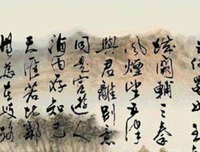 城闕輔三秦
風煙望五津
與君離別意
同是宦遊人
海内存知己
天涯若比鄰
無為在歧路